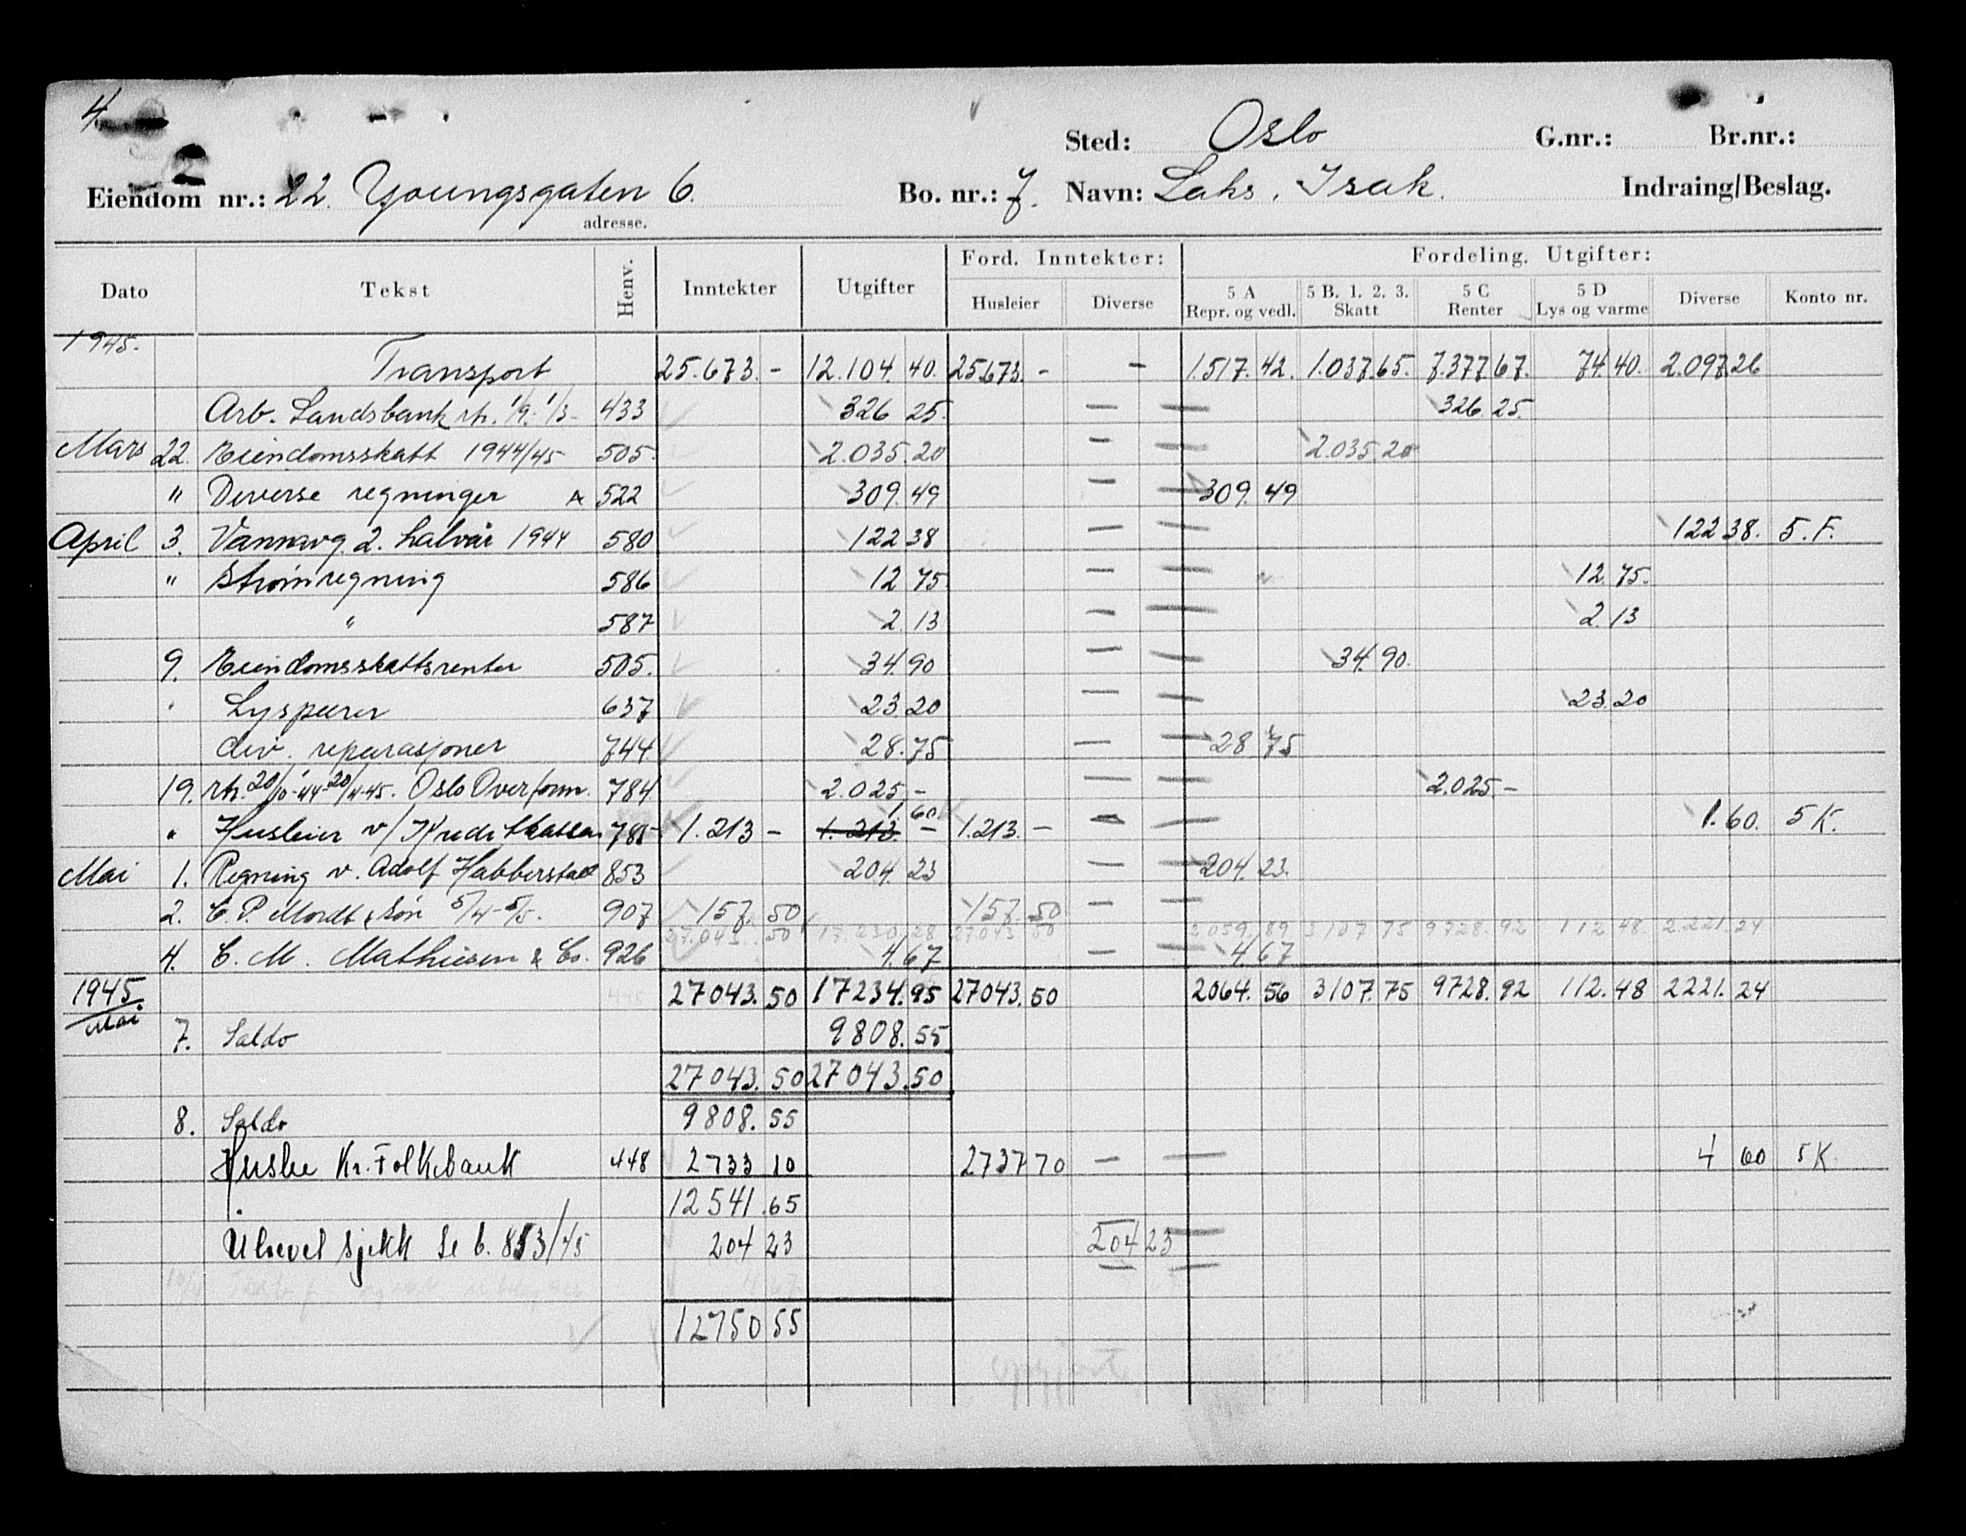 4.
2
Sted: Oslo G.nr.: Br.nr.:
Eiendom nr.: 22. Youngsgaten 6. Bo. nr.: 7. Navn: Lahs, Isak. Indraing/Beslag.
adresse.
Dato Tekst Henv. Inntekter Utgifter Ford. Inntekter: Fordeling. Utgifter:
Husleier Diverse 5 A Repr. og vedl. 5 B. 1. 2. 3. Skatt 5 C Renter 5 D Lys og varme Diverse Konto nr.
1945.
Transport 25.673.- 12.104.40. 25673.- - 1.517.42. 1.037.65. 7.377.67. 74.40. 2.097.26
Arb. Landsbank rh. 1/9-1/3- 433 326 25. — — 326.25.
Mars 22. Eiendomsskatt 1944/45 505. 2.035.20 — — 2.035.20
" Diverse regninger 522 309.49 — — 309.49
April 3. Vannavg. 2. halvår 1944 580 122 38 — — 122 38. 5.F.
" Strømregning 586 12 75 — — 12.75.
" 587 2.13 — — 2.13
9. Eiendomsskattsrenter 505. 34.90 — — 34.90.
" Lyspærer 637 23.20 — — 23.20
div. reparasjoner 744. 28.75 — 28 75
19. rh. 20/10-44-20/4-45. Oslo Overform. 784 2.025.- — — 2.025.-
1.60
" Husleier v/Kreditkassen 785 1.213 - 1.213. - 1.213. - — — 1.60. 5 K.
Mai 1. Regning v. Adolf Habberstad 853 204.23 — 204.23.
2. C. P. Mordt & Søn 5/4-5/5. 907 157.50 157.50 — —
27.043.50 17.230.28 27043.50 2.059.89 3107.75 9728.92 112.48. 2.221.24
4. C. M. Mathiesen & Co. 926 4.67 — 4.67
1945 27043.50 17234.95 27043.50 2064.56 3107.75 9728.92 112.48 2221.24
Mai
7. Saldo 9808.55
27043.50 27043.50
8. Saldo 9808.55
Husleie Kr. Folkebank 448 2733 10 2737 70 — — 4 60 5 K.
12541.65
Ulhevet sjekk Se b. 853/45 204 23 204 23
4 67
12750 55
oppgjort